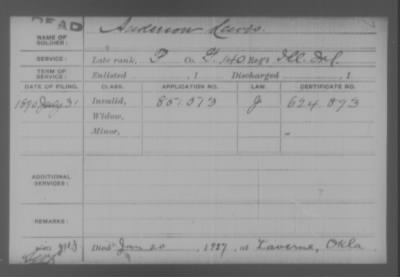 DEAD
NAME OF SOLDIER: Anderson
SERVICE: Late rank, P Co. G, 140 Reg't Ill. Inf.
TERM OF SERVICE: Enlisted , 1 Discharged , 1
DATE OF FILING. CLASS. APPLICATION NO. LAW. CERTIFICATE NO.
1890 July 31 Invalid, 857.373 J 624.373
Widow,
Minor,
ADDITIONAL SERVICES:
REMARKS:
Died Jan 20, 1927, at Laverne, Okla.